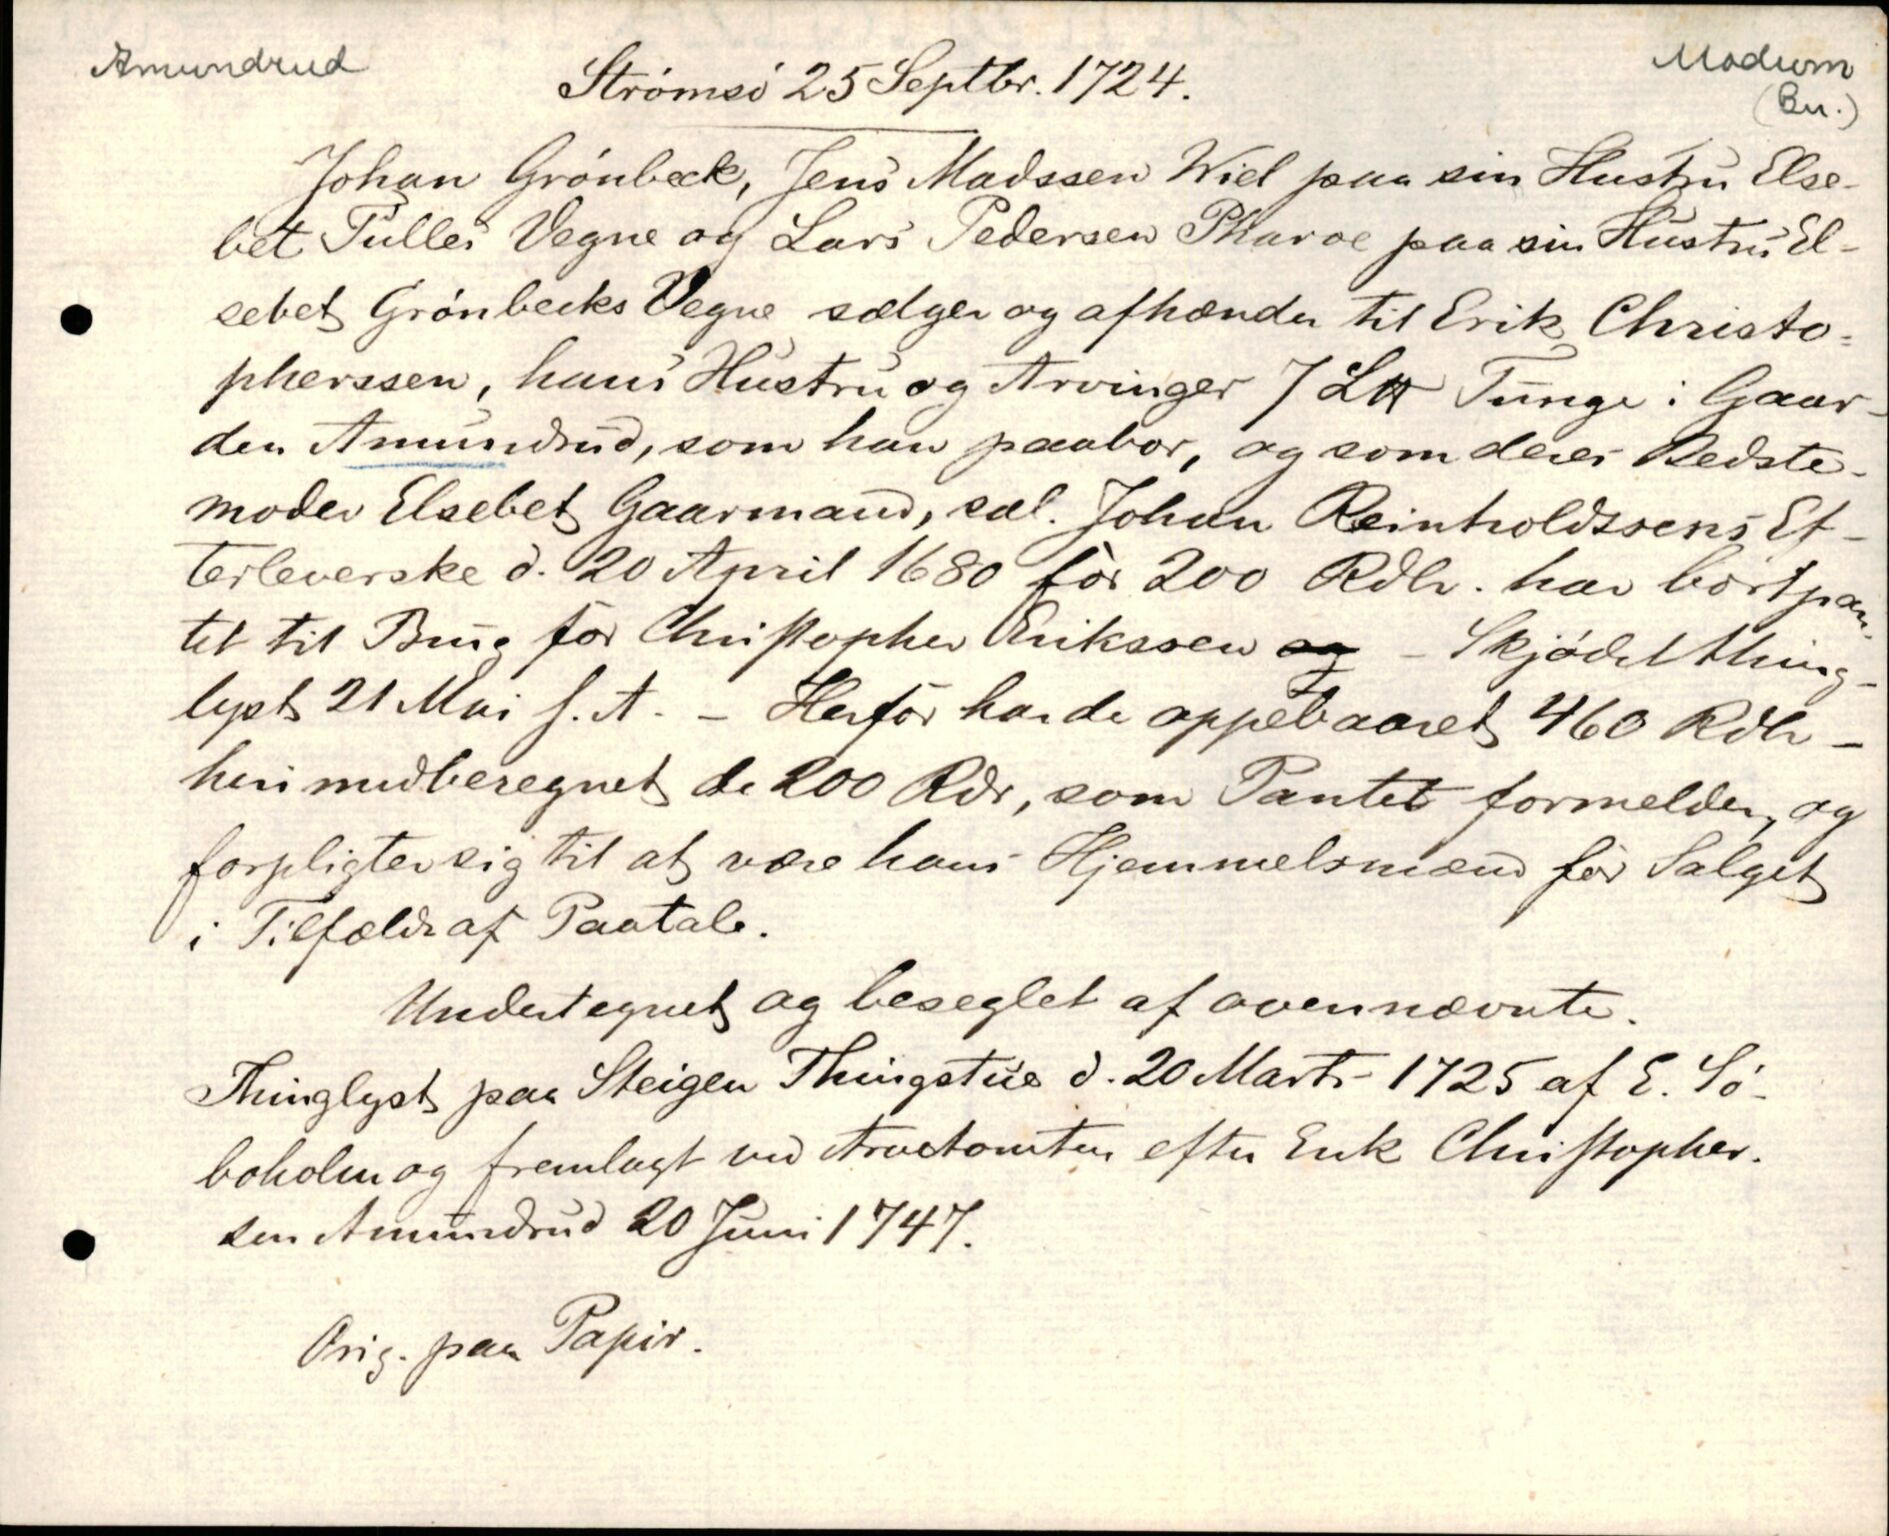 Amundrud
Modum
(Bu.)
Strømsö 25 Septbr. 1724.
Johan Grönbeck, Jens Madssen Wiel paa sin Hustru Else-
bet Tulles Vegne og Lars Pedersen Pharoe paa sin Hustru El-
sebet Grönbecks Vegne sælger og afhænder til Erik Christo-
pherssen, hans Hustru og Arvinger 7 L℔ Tunge i Gaar-
den Amundrud, som han paabor, og som deres Bedste-
moder Elsebet Gaarmand, sal. Johan Reinholdssens Ef-
terleverske d. 20 April 1680 för 200 Rdlr. har bortpan-
tet til Brug för Christopher Erikssen - Skjödet thing-
lyst 21 Mai s. A. - Herför har de oppebaaret 460 Rdlr -
heri medberegnet de 200 Rdr, som Pantet formelder, og
forpligter sig til at være hans Hjemmelsmænd för Salget
i Tilfælde af Paatale.
Undertegnet og beseglet af ovennævnte.
Thinglyst paa Steigen Thingstue d. 20 Marts 1725 af E. Sö-
boholm og fremlagt ved Arvetomten efter Erik Christopher-
sen Amundrud 20 Juni 1747.
Orig. paa Papir.